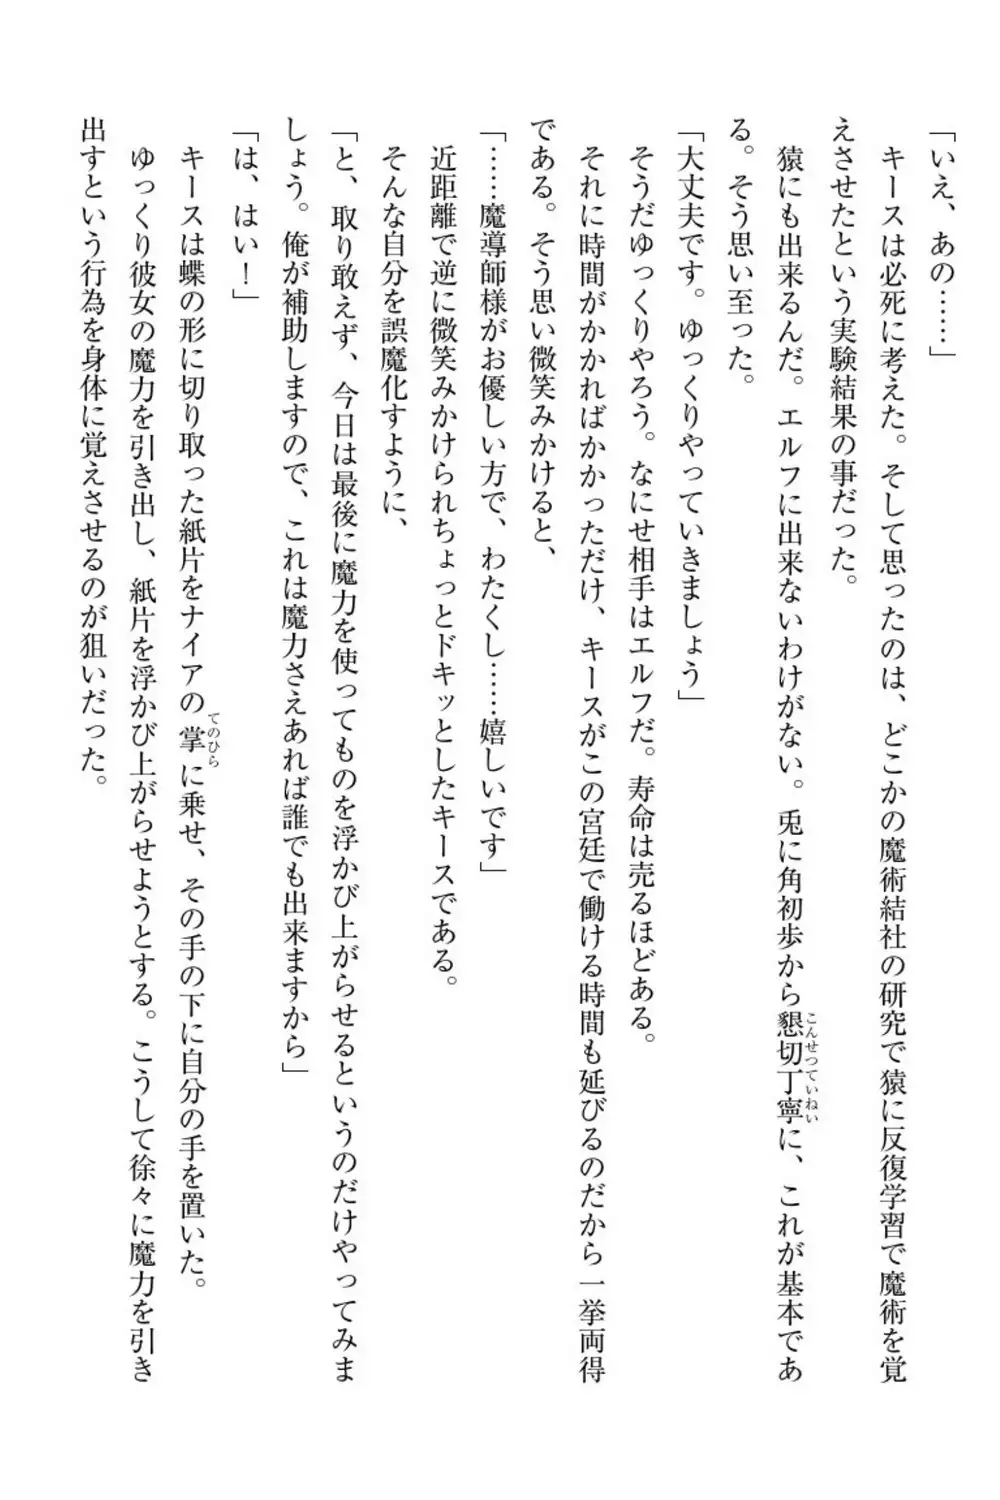 「いえ、あの……」
キースは必死に考えた。そして思ったのは、どこかの魔術結社の研究で猿に反復学習で魔術を覚
えさせたという実験結果の事だった。
猿にも出来るんだ。エルフに出来ないわけがない。兎に角初歩から懇切丁寧に、これが基本であ
こんせつていねい
る。そう思い至った。
「大丈夫です。ゆっくりやっていきましょう」
そうだゆっくりやろう。なにせ相手はエルフだ。寿命は売るほどある。
それに時間がかかればかかっただけ、キースがこの宮廷で働ける時間も延びるのだから一挙両得
である。そう思い微笑みかけると、
「……魔導師様がお優しい方で、わたくし……嬉しいです」
近距離で逆に微笑みかけられちょっとドキッとしたキースである。
そんな自分を誤魔化すように、
「と、取り敢えず、今日は最後に魔力を使ってものを浮かび上がらせるというのだけやってみま
しょう。俺が補助しますので、これは魔力さえあれば誰でも出来ますから」
「は、はい！」
キースは蝶の形に切り取った紙片をナイアの掌に乗せ、その手の下に自分の手を置いた。
てのひら
ゆっくり彼女の魔力を引き出し、紙片を浮かび上がらせようとする。こうして徐々に魔力を引き
出すという行為を身体に覚えさせるのが狙いだった。